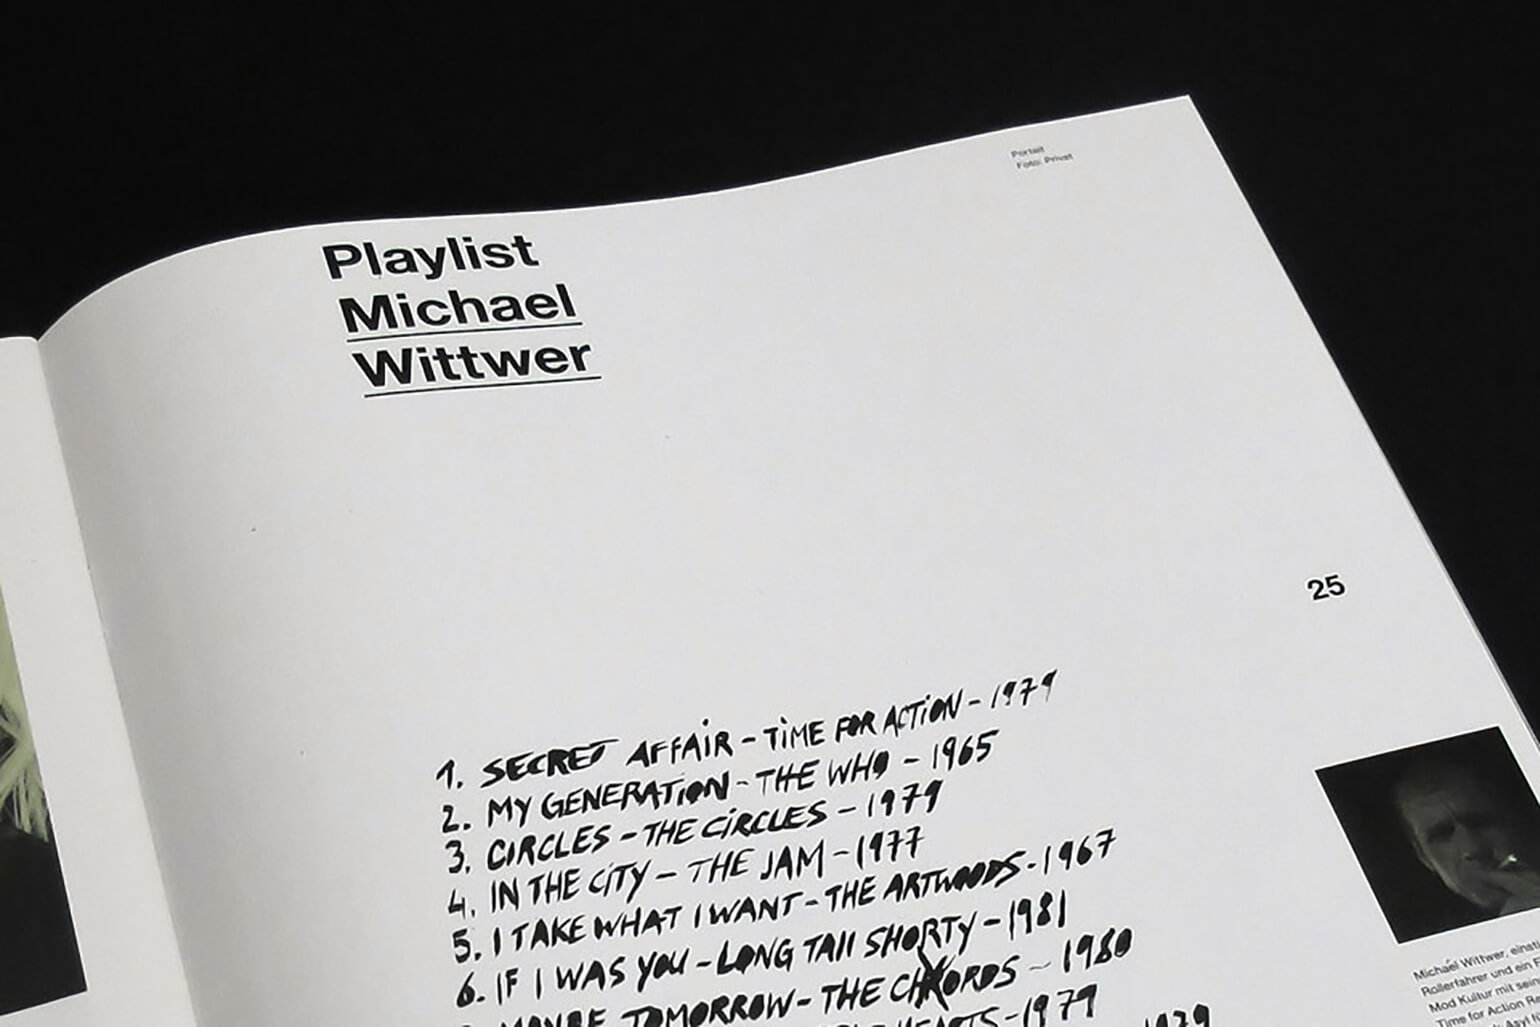 Portait
Foto: Privat
Playlist
Michael
Wittwer
25
1. SECRET AFFAIR - TIME FOR ACTION - 1979
2. MY GENERATION - THE WHO - 1965
3. CIRCLES - THE CIRCLES - 1979
4. IN THE CITY - THE JAM - 1977
5. I TAKE WHAT I WANT - THE ARTWOODS - 1967
6. IF I WAS YOU - LONG TALL SHORTY - 1981
MAYBE TOMORROW - THE CHORDS - 1980
HEARTS - 1979
1979
Michael Wittwer, einst
Rollerfahrer und ein F
Mod Kultur mit sein
Time for Action Re